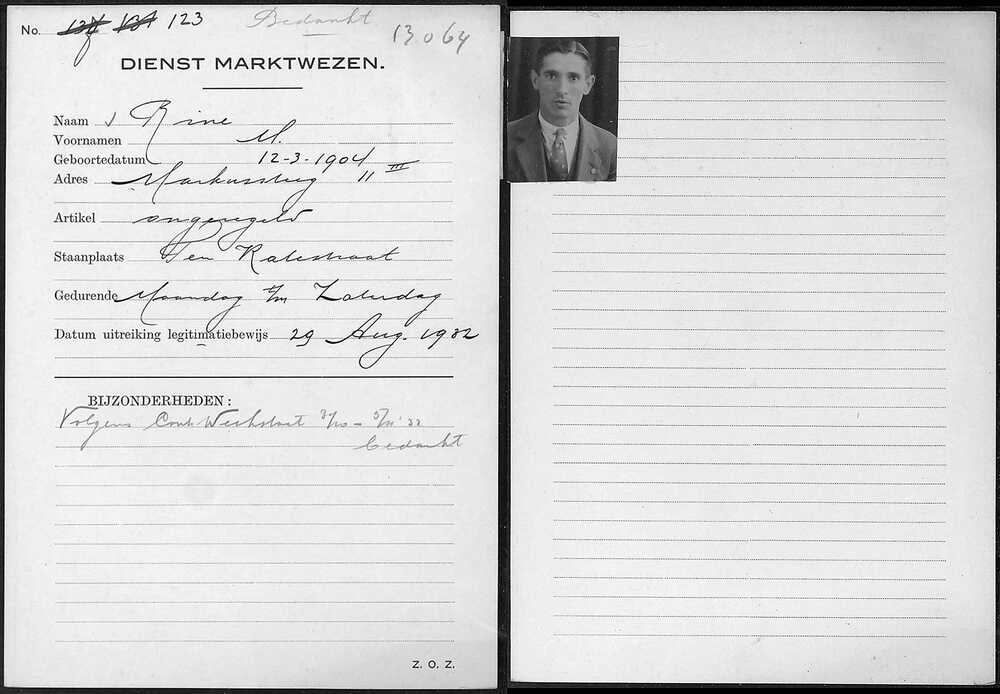 No. 123 Bedankt
13064
DIENST MARKTWEZEN.
Naam √ Rine
Voornamen M.
Geboortedatum 12-3-1904
Adres Markussteeg 11 III
Artikel ongeregeld
Staanplaats Ten Katestraat
Gedurende Maandag t/m Zaterdag
Datum uitreiking legitimatiebewijs 29 Aug. 1932
BIJZONDERHEDEN:
Volgens Contr. Weekstaat 31/10 - 5/11 '32
bedankt
Z. O. Z.